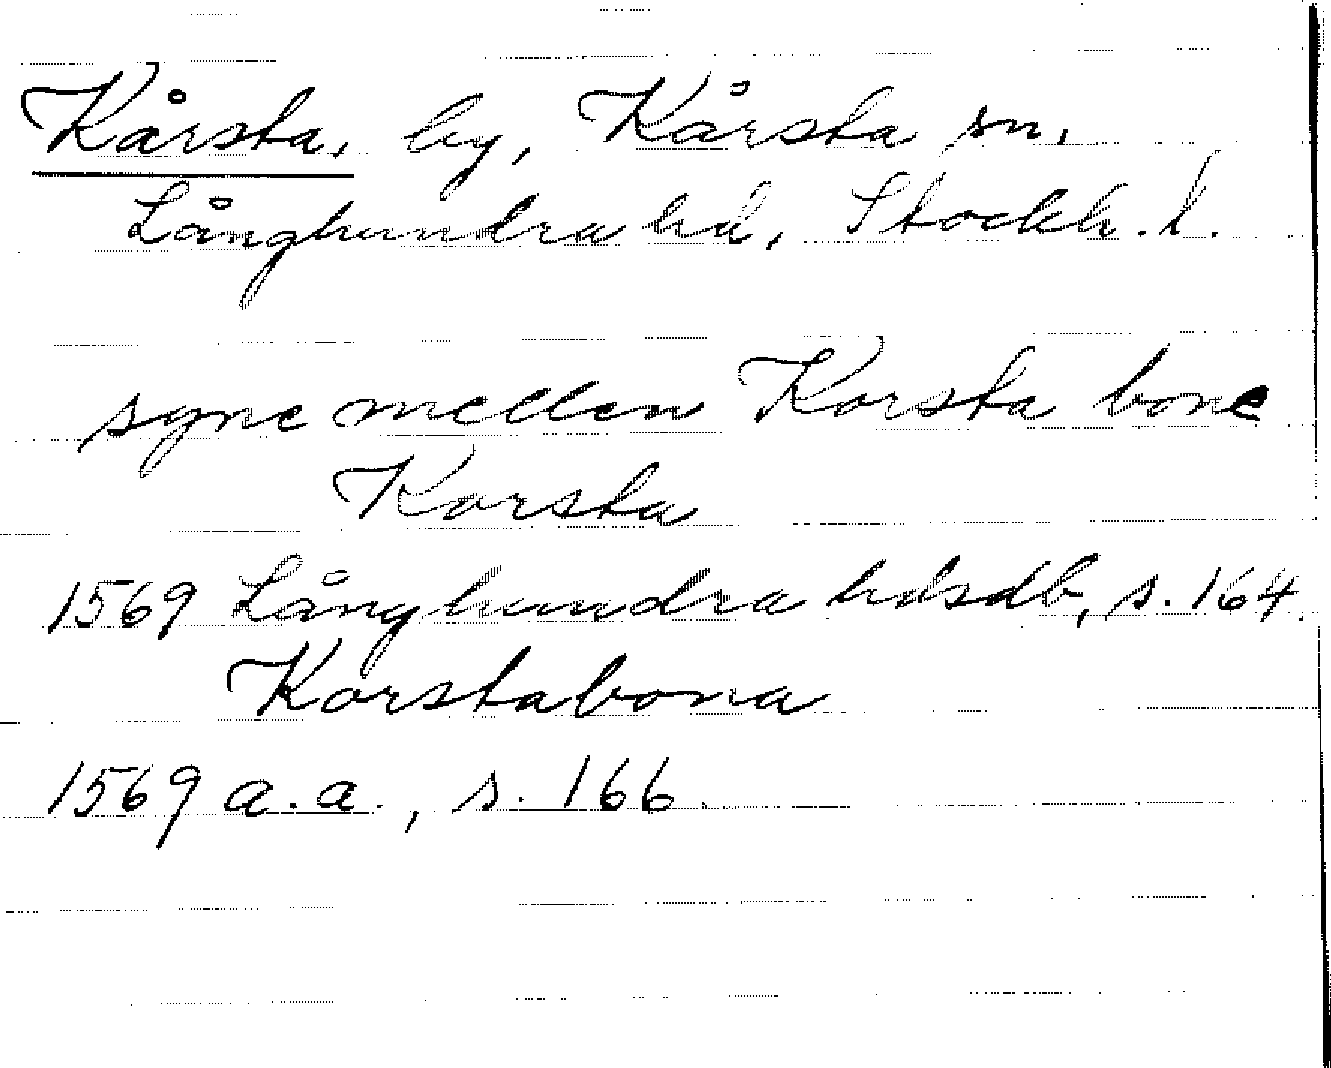 Kårsta, by, Kårsta sn,
Långhundra hd, Stockh. l.
syne mellen Korsta bone
Korsta
1569 Långhundra hdsdb, s. 164.
Korstabona
1569 a.a., s. 166.